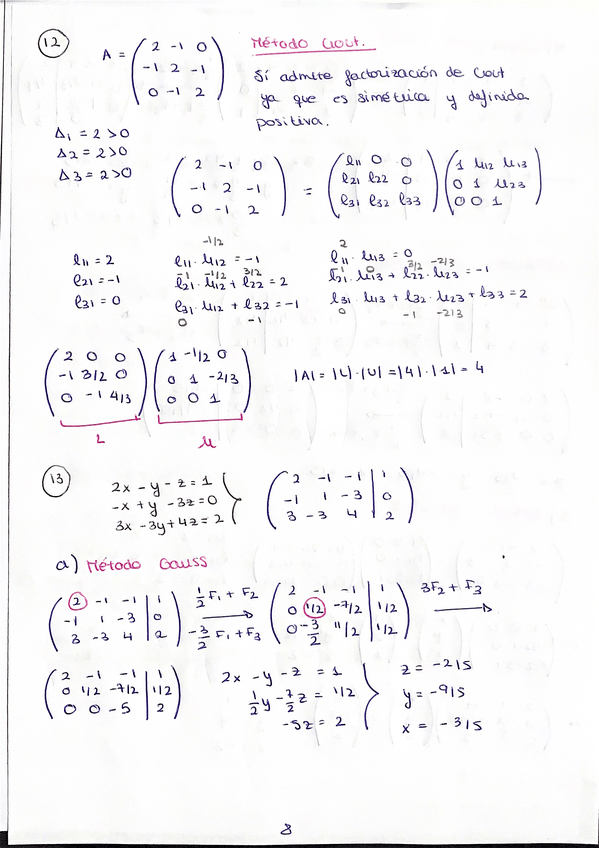 12
A = ( 2 -1 0
-1 2 -1
0 -1 2 )
Método Crout.
Sí admite factorización de Crout
ya que es simétrica y definida
positiva.
Δ1 = 2 > 0
Δ2 = 2 > 0
Δ3 = 2 > 0
( 2 -1 0
-1 2 -1
0 -1 2 ) = ( l11 0 0
l21 l22 0
l31 l32 l33 ) ( 1 u12 u13
0 1 u23
0 0 1 )
l11 = 2
l21 = -1
l31 = 0
-1/2
l11 · u12 = -1
-1 -1/2 3/2
l21 · u12 + l22 = 2
l31 · u12 + l32 = -1
0 -1
2
l11 · u13 = 0
-1 0 3/2 -2/3
l21 · u13 + l22 · u23 = -1
l31 · u13 + l32 · u23 + l33 = 2
0 -1 -2/3
( 2 0 0
-1 3/2 0
0 -1 4/3 ) ( 1 -1/2 0
0 1 -2/3
0 0 1 )
L u
|A| = |L| · |U| = |4| · |1| = 4
13
2x - y - z = 1
-x + y - 3z = 0
3x - 3y + 4z = 2
( 2 -1 -1 | 1
-1 1 -3 | 0
3 -3 4 | 2 )
a) Método Gauss
( 2 -1 -1 | 1
-1 1 -3 | 0
3 -3 4 | 2 )
1/2 F1 + F2
-3/2 F1 + F3
( 2 -1 -1 | 1
0 1/2 -7/2 | 1/2
0 -3/2 11/2 | 1/2 )
3F2 + F3
( 2 -1 -1 | 1
0 1/2 -7/2 | 1/2
0 0 -5 | 2 )
2x - y - z = 1
1/2 y - 7/2 z = 1/2
-5z = 2
z = -2/5
y = -9/5
x = -3/5
8